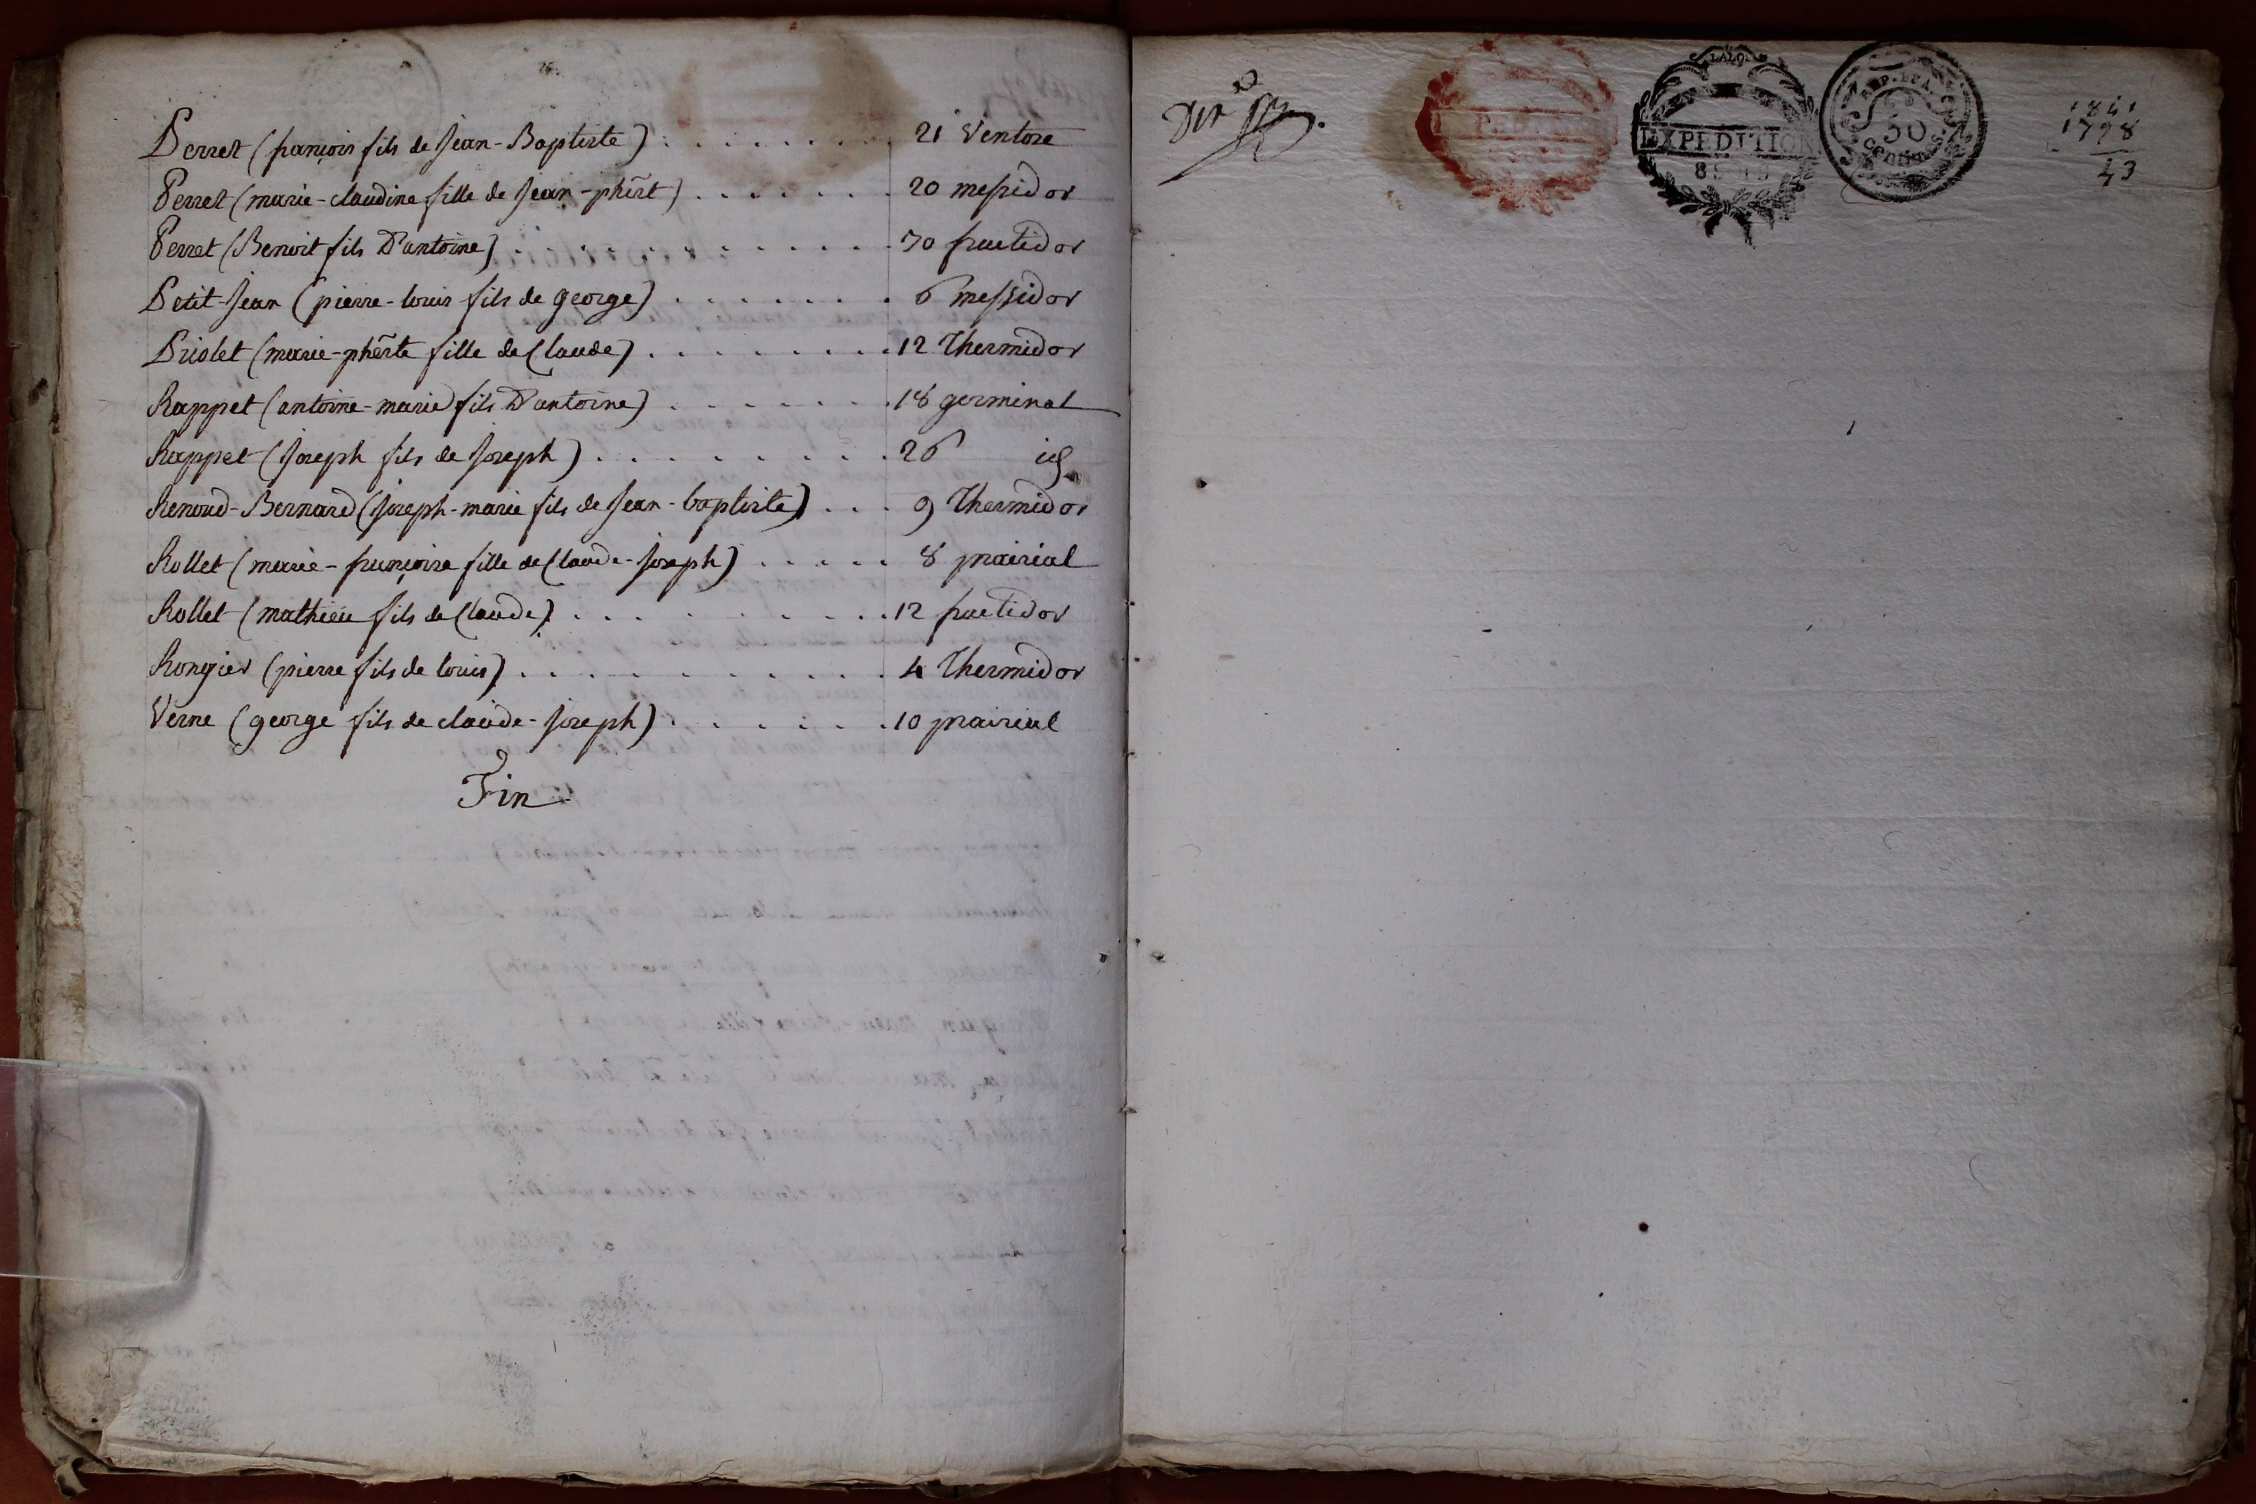 Perret (françois fils de Jean-Baptiste) . . . . . . . 21 Ventose
Perret (marie-claudine fille de Jean-phert) . . . . . . . 20 messidor
Perret (Benoit fils D'antoine) . . . . . . . . . . 30 fructidor
Petit-Jean (pierre-louis fils de george) . . . . . . . 6 messidor
Priolet (marie-pherte fille de Claude) . . . . . . . . 12 Thermidor
Rappet (antoine-marie fils D'antoine) . . . . . . . 18 germinal
Rappet (Joseph fils de Joseph) . . . . . . . . . 26 id
Renoud-Bernard (Joseph-marie fils de Jean-baptiste) . . . 9 Thermidor
Rollet (marie-françoise fille de Claude-Joseph) . . . . . 8 prairial
Rollet (mathieu fils de Claude) . . . . . . . . . . 12 fructidor
Rongier (pierre fils de louis) . . . . . . . . . . . 4 Thermidor
Verne (george fils de claude-Joseph) . . . . . . 10 prairial
Fin
LA LOI
EXPEDITION
REP. FRA.
50
centimes
1841
1798
43